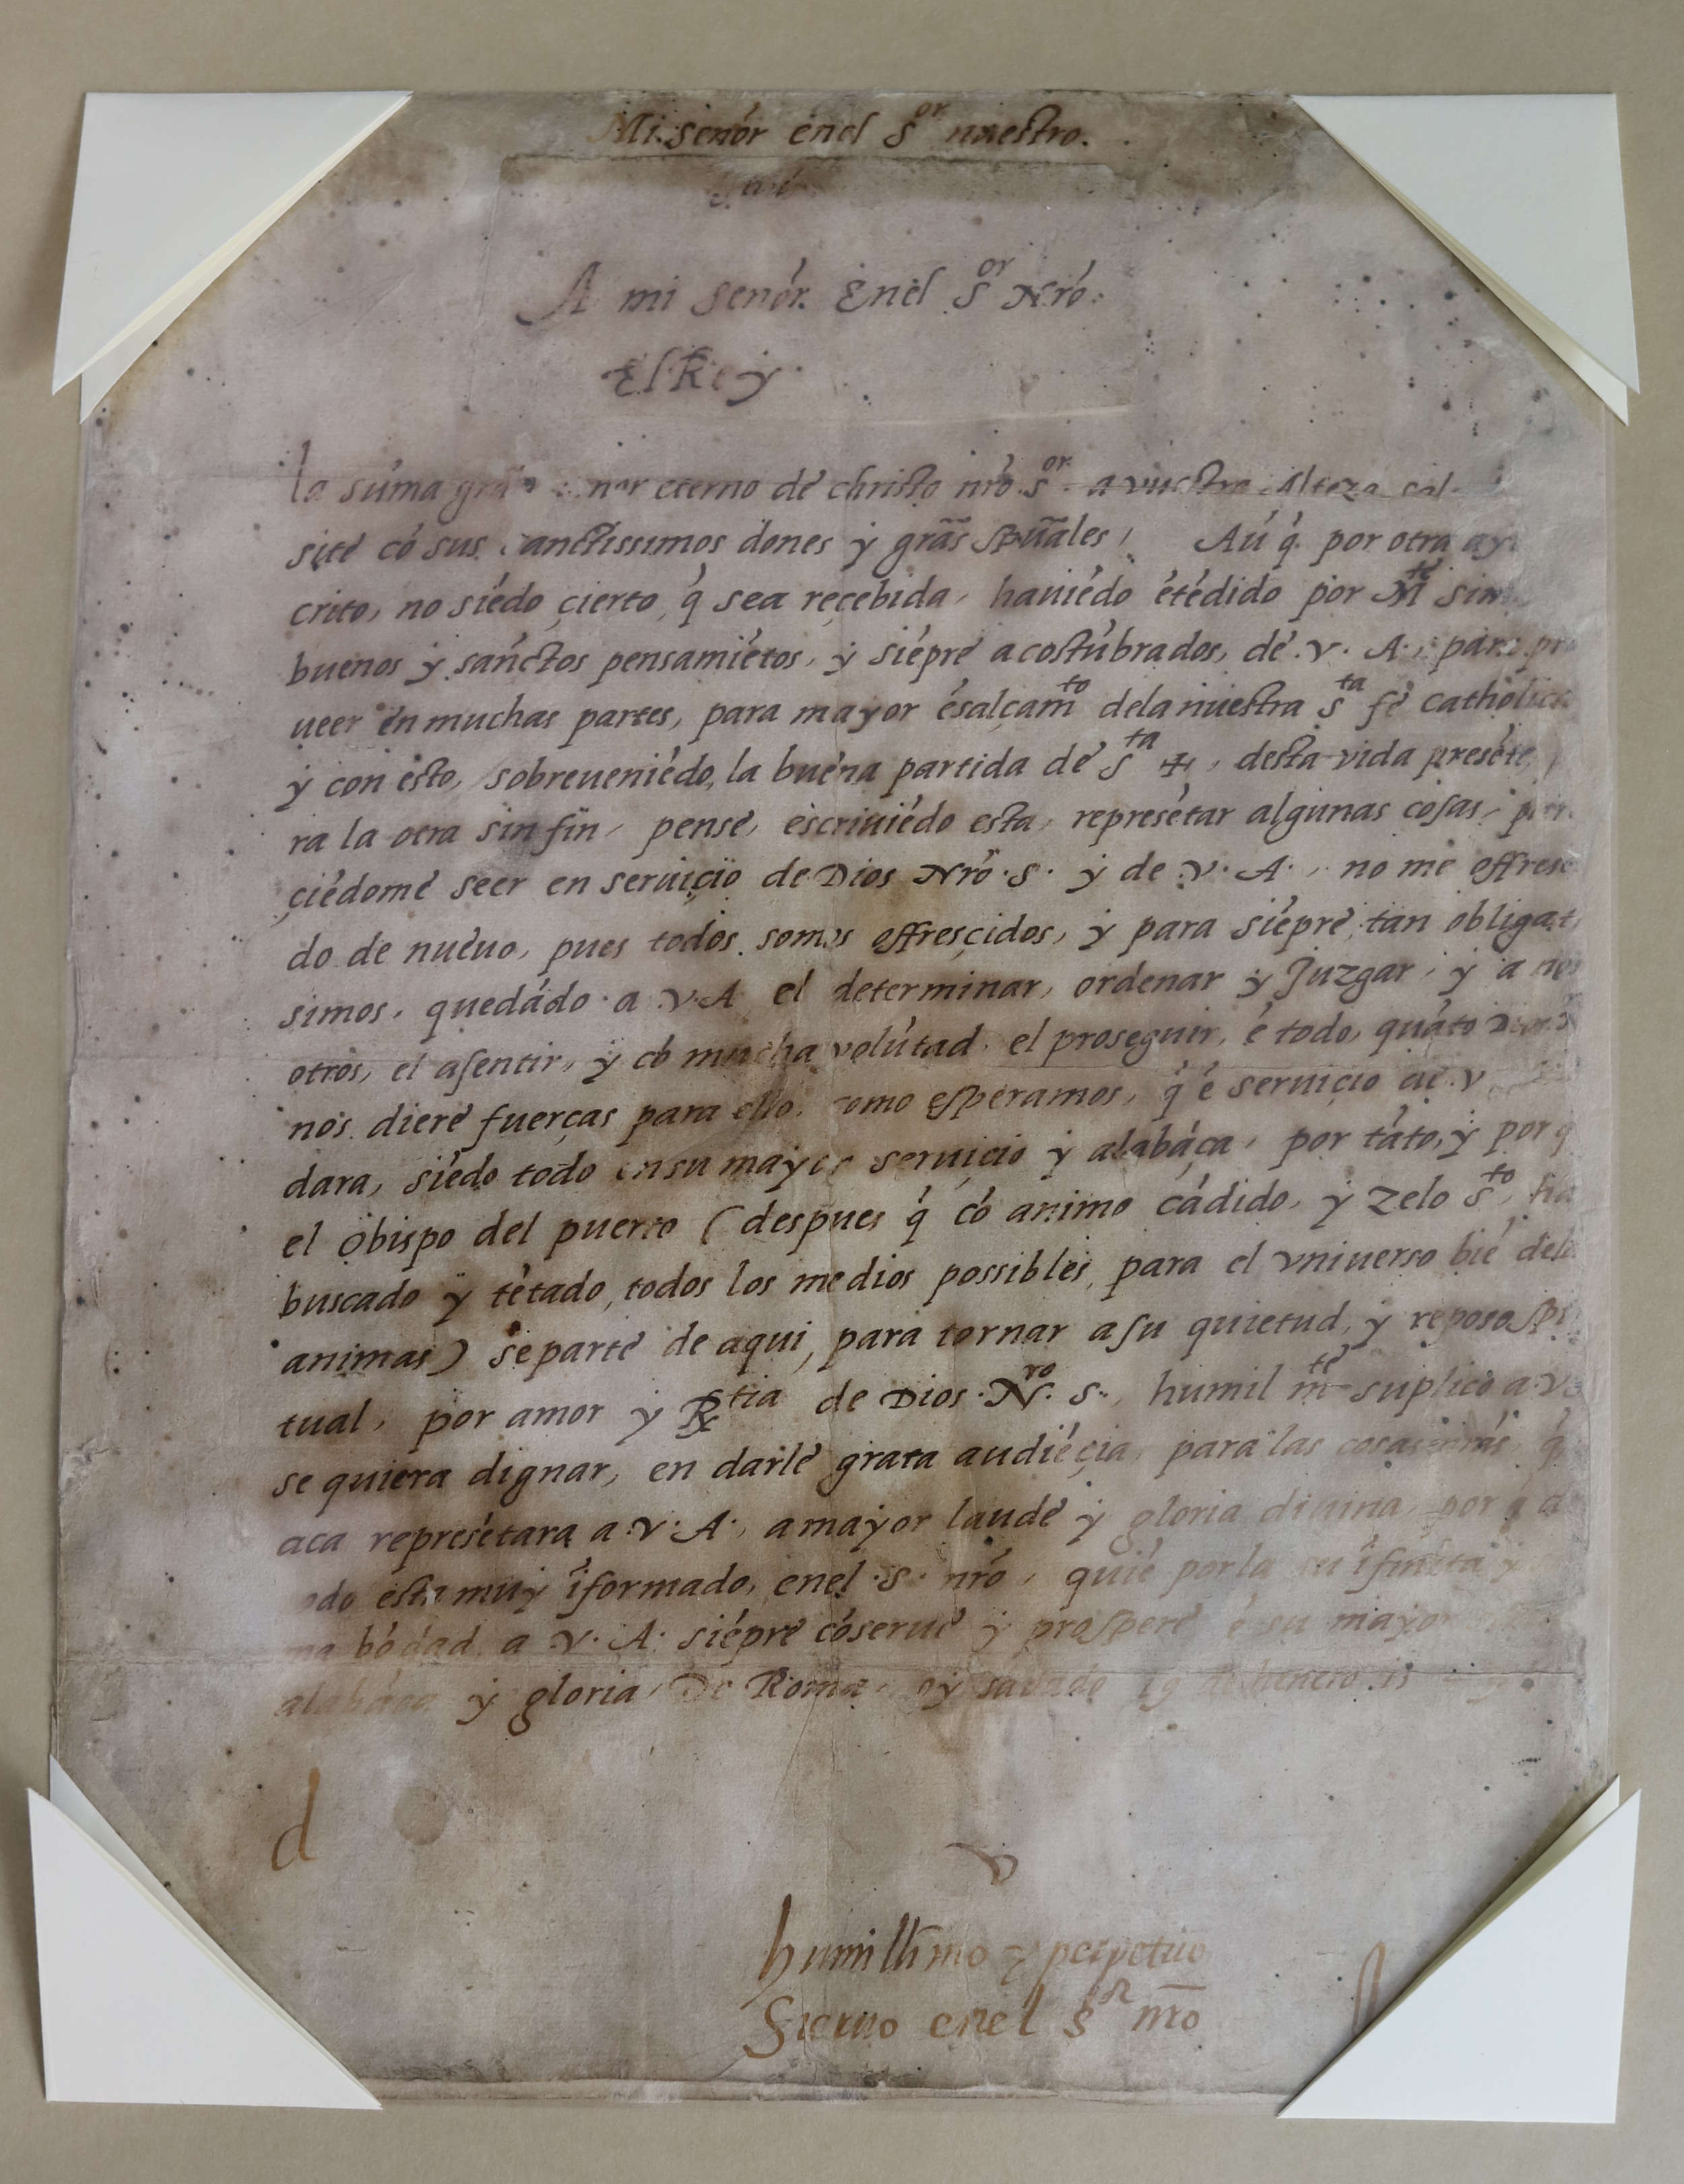 Mi señor énel S.or nuestro.
A mi señor. Enel S.or Nr̃o.
El Rey
la súma grã eterno dé christo nr̃o S.or a vuestra Alteza
sité có sus sanctissimos dones y grãs spũales, Aú q́ por otra
crito, no siédo çierto q́ sea reçebida, hauiédo étédido por M.te
buenos y sanctos pensamiétos, y siépré acostúbrados, dé .V. A. para
ueer en muchas partes, para mayor ésalçam.to dela nuestra S.ta fé catholica
y con ésto, sobreueniédo, la buéna partida dé S.ta ✠, desta vida preséte
ra la otra sin fin, pensé, éscriuiédo ésta, represétar algunas cosas,
çiédomé seer en seruiçio de Dios Nr̃o .S. y de .V. A., no mé offresc
do de nuéuo, pues todos somos offresçidos, y para siépré tan obligat
simos, quedádo a .V. A el determinar, ordenar y Juzgar, y a
otros, el asentir, y có mucha volútad el proseguir, é todo, quáto
nos dieré fuerças para ello, como ésperamos, q́ é seruiçio dé .V
dara, siédo todo en su mayor seruiçio y alabáça, por táto, y por q
el Obispo del puerto (despues q́ có animo cádido, y zelo S.to,
buscado y tétado, todos los medios possiblés, para el vniuerso bié dela
animas) se parté de aqui, para tornar a su quietud, y reposo spi
tual, por amor y R.tia de Dios N.ro S., humil m.te suplico a .V
se quiera dignar, en darlé grata audiéçia, para las cosas q́
aca represétara a .V. A., a mayor laudé y gloria diuina por q́
odo ésta muy iformado, enel .S. nr̃o, quié por la su ifinita y
bódad a .V. A. siépré cóserué y prosperé é su mayor
alabáça y gloria, De Roma, oy sabado 19 de henero
humillimo y perpetuo
Sieruo enel S.or nr̃o